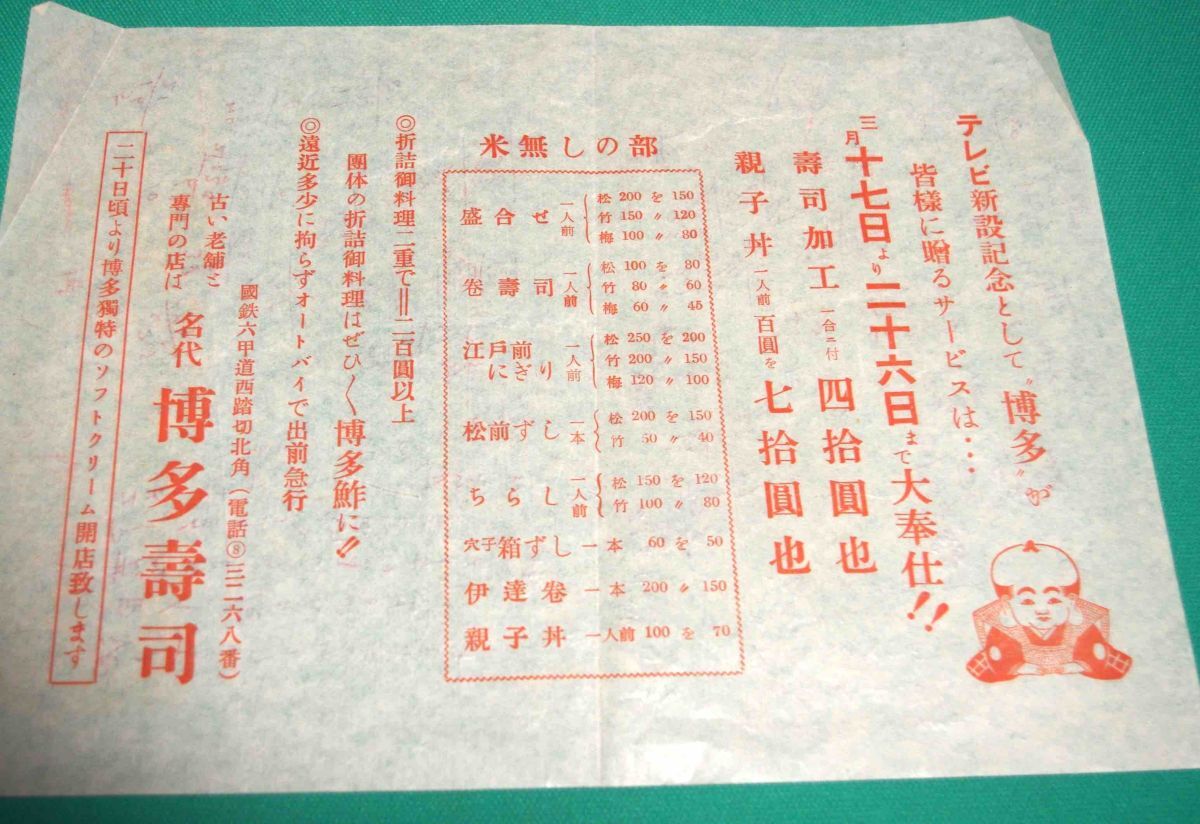 テレビ新設記念として〝博多〟が
皆様に贈るサービスは・・・
三月十七日より二十六日まで大奉仕!!
壽司加工 一合ニ付 四拾圓也
親子丼 一人前 百圓を 七拾圓也
米無しの部
盛合せ 一人前 松 200 を 150
竹 150 〃 120
梅 100 〃 80
卷壽司 一人前 松 100 を 80
竹 80 〃 60
梅 60 〃 45
江戸前にぎり 一人前 松 250 を 200
竹 200 〃 150
梅 120 〃 100
松前ずし 一本 松 200 を 150
竹 50 〃 40
ちらし 一人前 松 150 を 120
竹 100 〃 80
穴子箱ずし 一本 60 を 50
伊達卷 一本 200 〃 150
親子丼 一人前 100 を 70
◎折詰御料理二重で＝二百圓以上
團体の折詰御料理はぜひ〱博多鮓に!!
◎遠近多少に拘らずオートバイで出前急行
國鉄六甲道西踏切北角(電話⑧三二六八番)
古い老舗と
専門の店は
名代 博多壽司
二十日頃より博多獨特のソフトクリーム開店致します